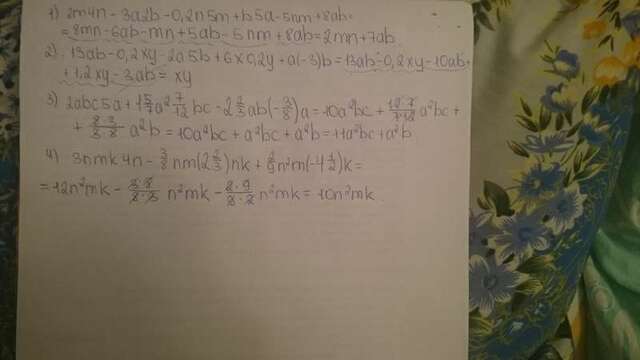 1) 2m4n - 3a2b - 0,2n5m + b5a - 5nm + 8ab =
= 8mn - 6ab - mn + 5ab - 5nm + 8ab = 2mn + 7ab
2) 13ab - 0,2xy - 2a5b + 6x0,2y + a(-3)b = 13ab - 0,2xy - 10ab +
+ 1,2xy - 3ab = xy
3) 2abc5a + 1 5/7 a² 7/12 bc - 2 2/3 ab(-3/8)a = 10a²bc + 12·7/7·12 a²bc +
+ 8·3/3·8 a²b = 10a²bc + a²bc + a²b = 11a²bc + a²b
4) 3nmk4n - 3/8 nm(2 2/3)nk + 2/9 n²m(-4 1/2)k =
= 12n²mk - 3·8/8·3 n²mk - 2·9/9·2 n²mk = 10n²mk